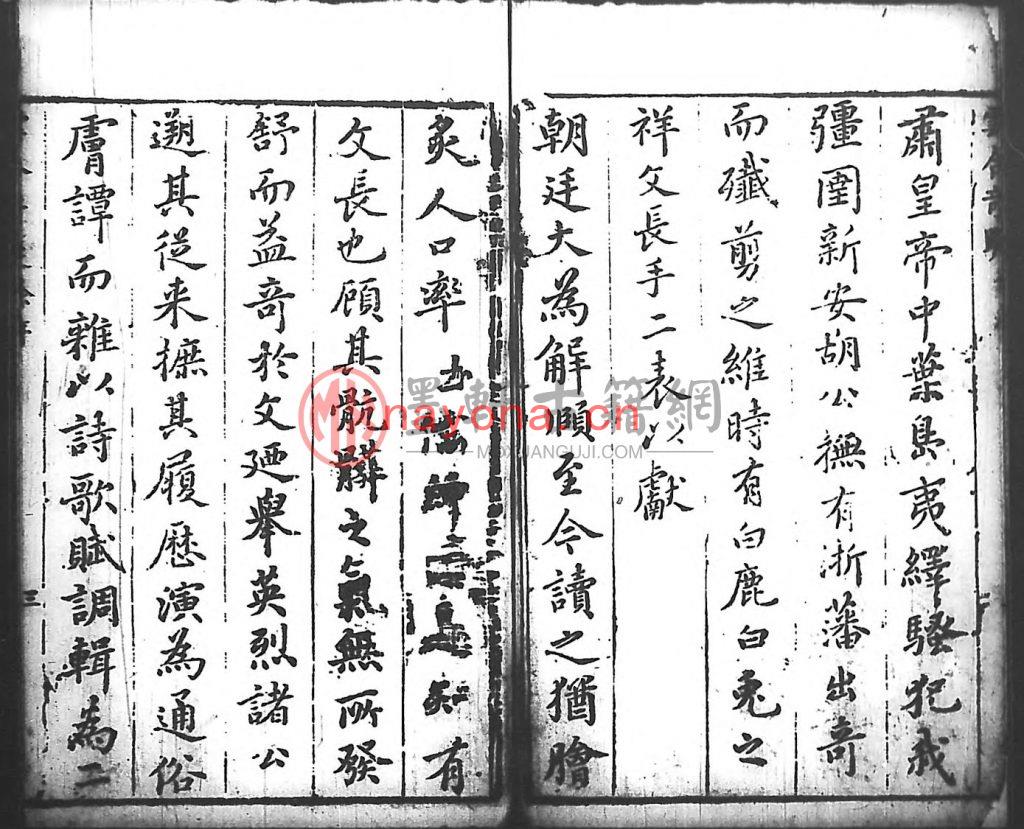 肅皇帝中葉島夷繹騷犯我
疆圉新安胡公撫有浙藩出奇
而殲剪之維時有白鹿白兔之
祥文長手二表以獻
朝廷大為解頤至今讀之猶膾
炙人口率 知有
文長也顧其骯髒之氣無所發
舒而益奇於文迺舉英烈諸公
遡其從来摭其履歷演為通俗
膚譚而雜以詩歌賦調輯為二
墨軒古籍網
nayona.cn
MOXUANGUJI.COM
三